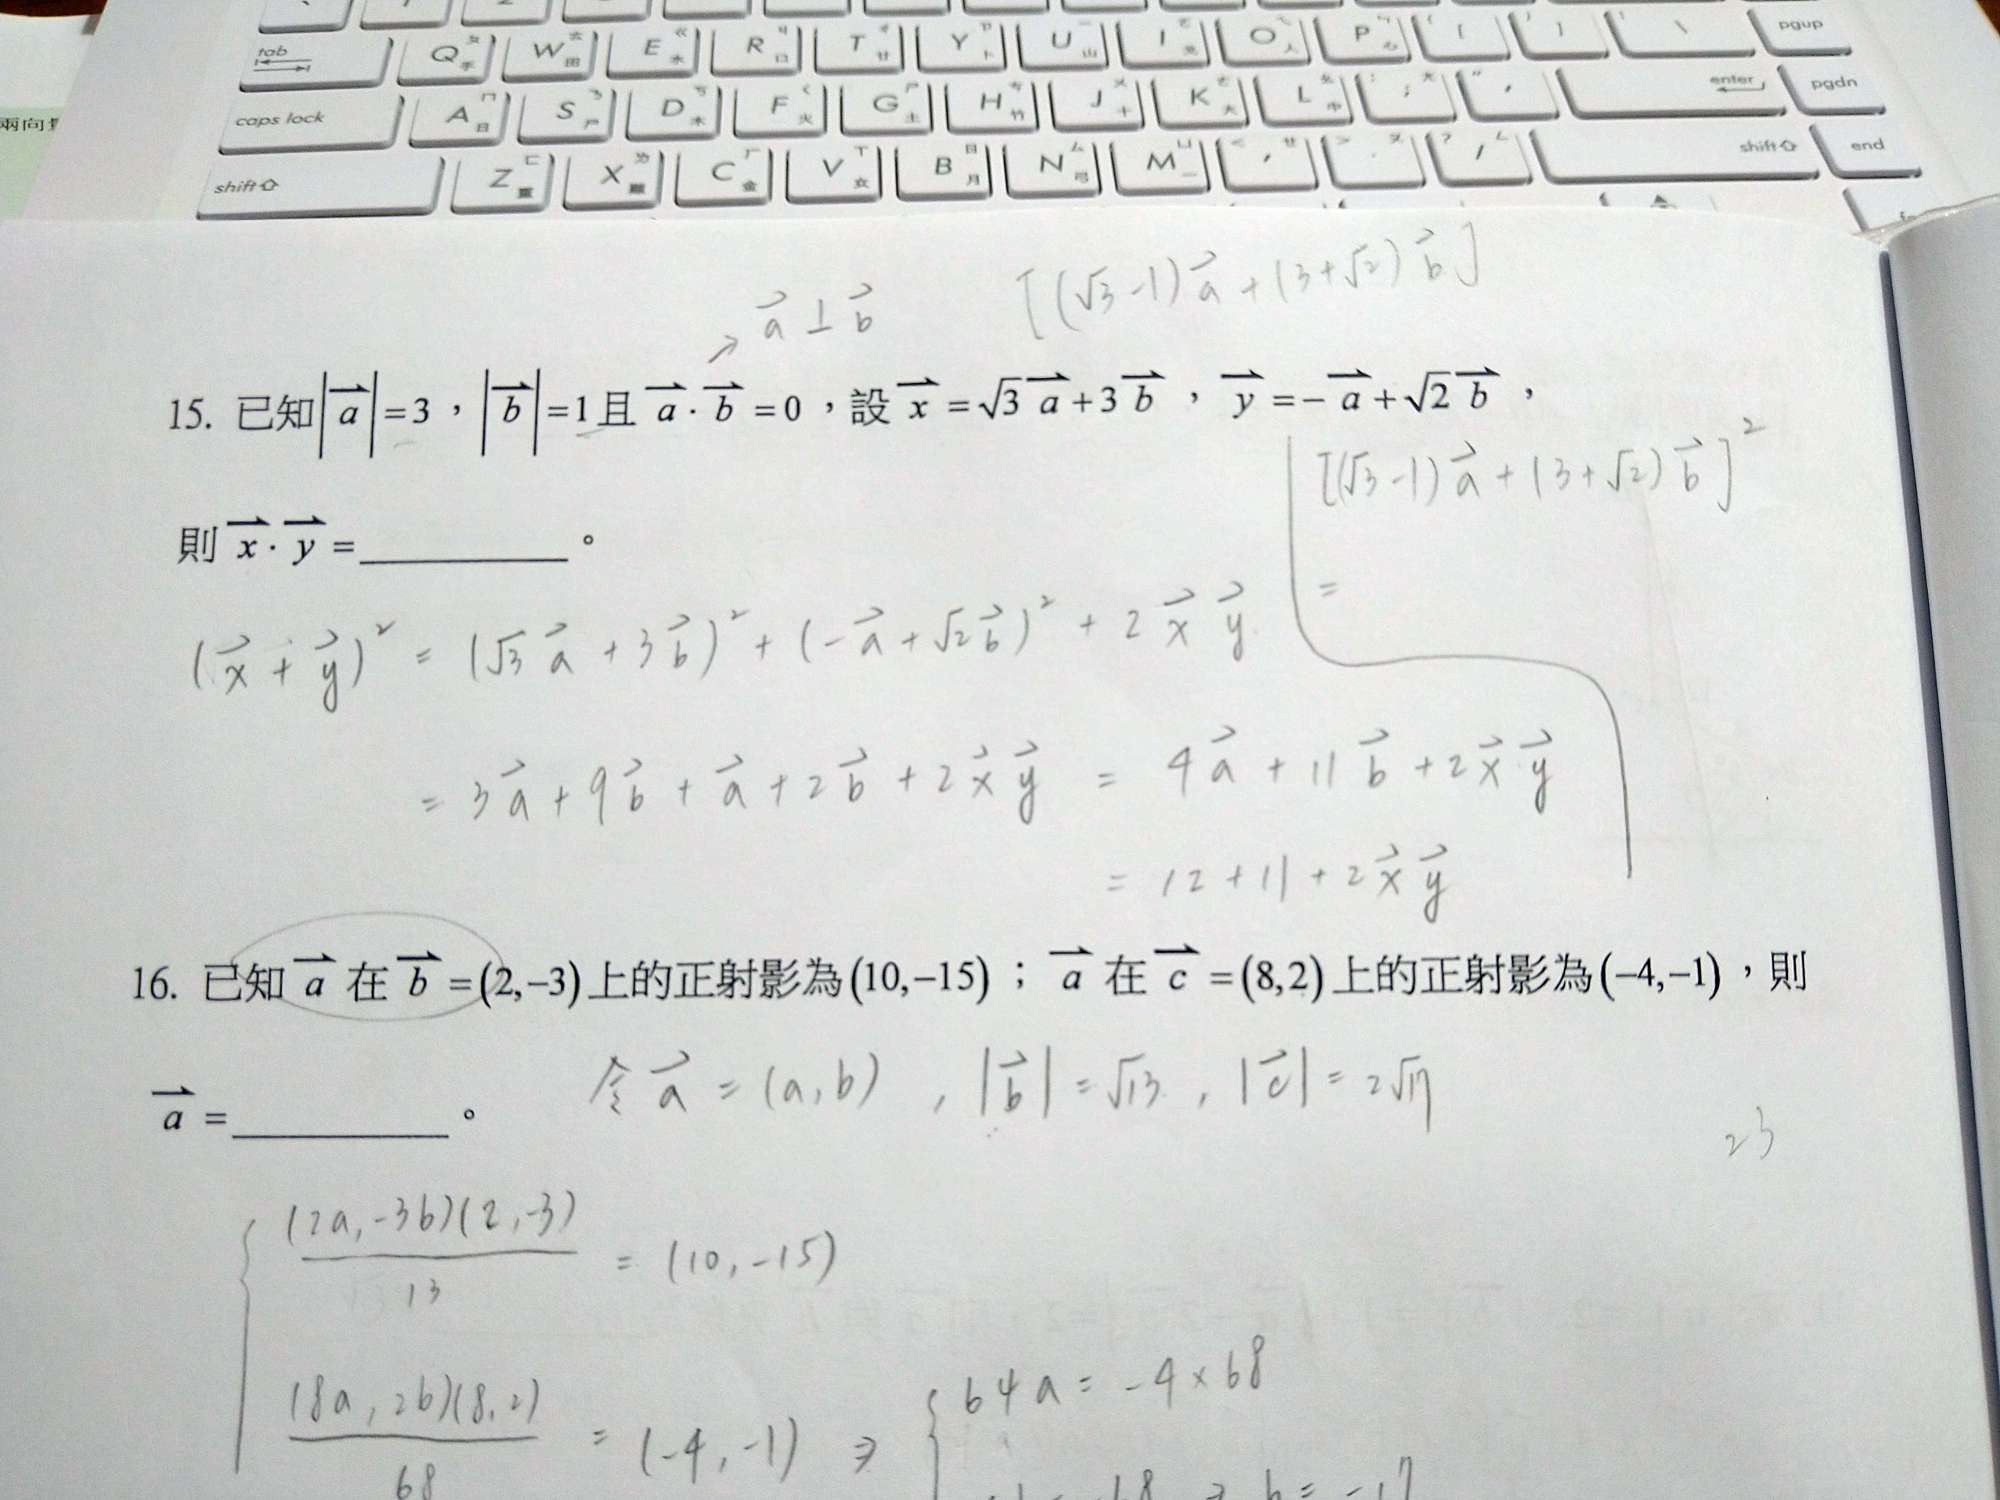 tab Q W E R T Y U I O P [ ] \ pgup
caps lock A S D F G H J K L ; ' enter pgdn
shift Z X C V B N M , . / shift end
兩向
a ⊥ b [(√3-1)a+(3+√2)b]
15. 已知|a|=3，|b|=1且 a·b=0，設 x=√3a+3b，y=-a+√2b，
[(√3-1)a+(3+√2)b]²
則 x·y=__________。
=
(x+y)²=(√3a+3b)²+(-a+√2b)²+2xy
=3a+9b+a+2b+2xy = 4a+11b+2xy
=12+11+2xy
16. 已知 a 在 b=(2,-3)上的正射影為(10,-15)；a 在 c=(8,2)上的正射影為(-4,-1)，則
a=__________。 令 a=(a,b), |b|=√13, |c|=2√17
23
(2a,-3b)(2,-3)
13
=(10,-15)
(8a,2b)(8,2)
68
=(-4,-1) ⇒ 64a=-4×68
b=-17